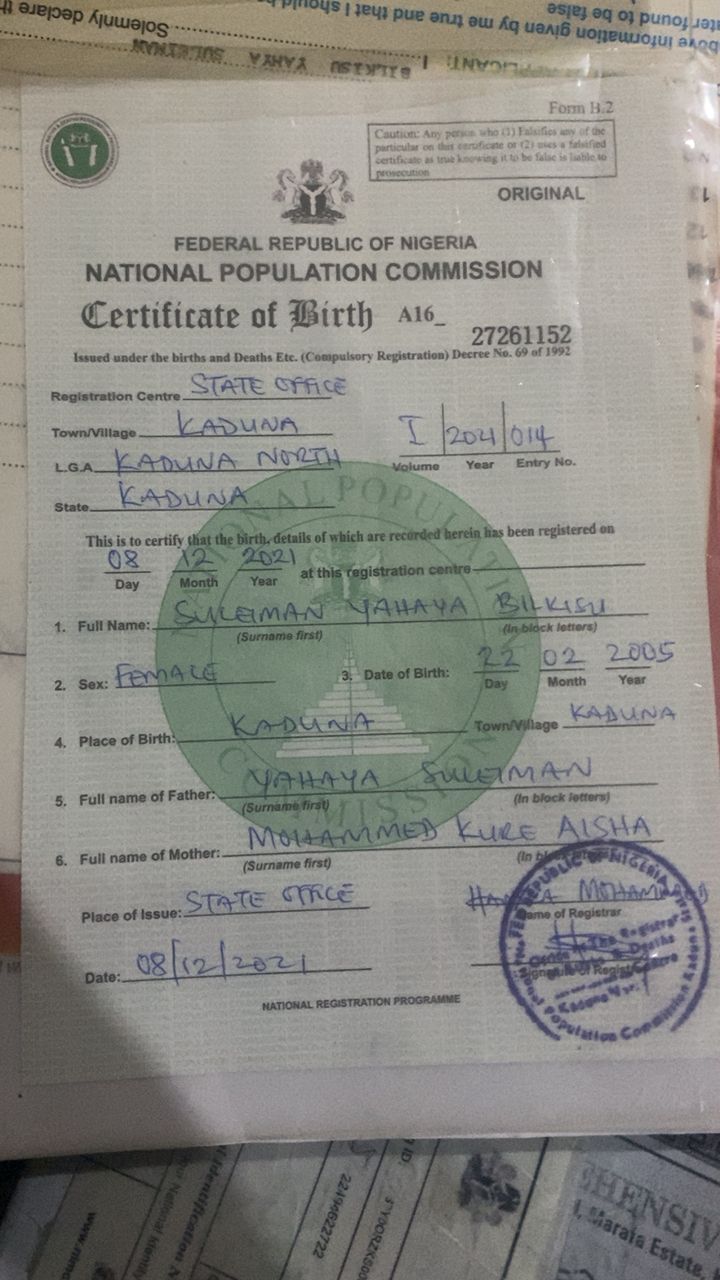 Solemnly declare th
bove information given by me true and that I should
ter found to be false
APPLICANT: I BILKISU YAHYA SULEIMAN
Form B.2
Caution: Any person who (1) Falsifies any of the
particular on this certificate or (2) uses a falsified
certificate as true knowing it to be false is liable to
prosecution
ORIGINAL
FEDERAL REPUBLIC OF NIGERIA
NATIONAL POPULATION COMMISSION
Certificate of Birth A16_ 27261152
Issued under the births and Deaths Etc. (Compulsory Registration) Decree No. 69 of 1992
Registration Centre STATE OFFICE
Town/Village KADUNA
I 2021 014
Volume Year Entry No.
L.G.A. KADUNA NORTH
State KADUNA
This is to certify that the birth, details of which are recorded herein has been registered on
08 12 2021 at this registration centre
Day Month Year
1. Full Name: SULEIMAN YAHAYA BILKISU
(Surname first) (In block letters)
2. Sex: FEMALE 3. Date of Birth: 22 02 2005
Day Month Year
4. Place of Birth: KADUNA Town/Village KADUNA
5. Full name of Father: YAHAYA SULEIMAN
(Surname first) (In block letters)
6. Full name of Mother: MOHAMMED KURE AISHA
(Surname first) (In block
Place of Issue: STATE OFFICE MOHAMMED
Name of Registrar
Date: 08/12/2021
Signature of Registrar
NATIONAL REGISTRATION PROGRAMME
NATIONAL POPULATION COMMISSION
FEDERAL REPUBLIC OF NIGERIA
The Registrar
Population Commission
22499622722
HENSIV
Marala Estate,